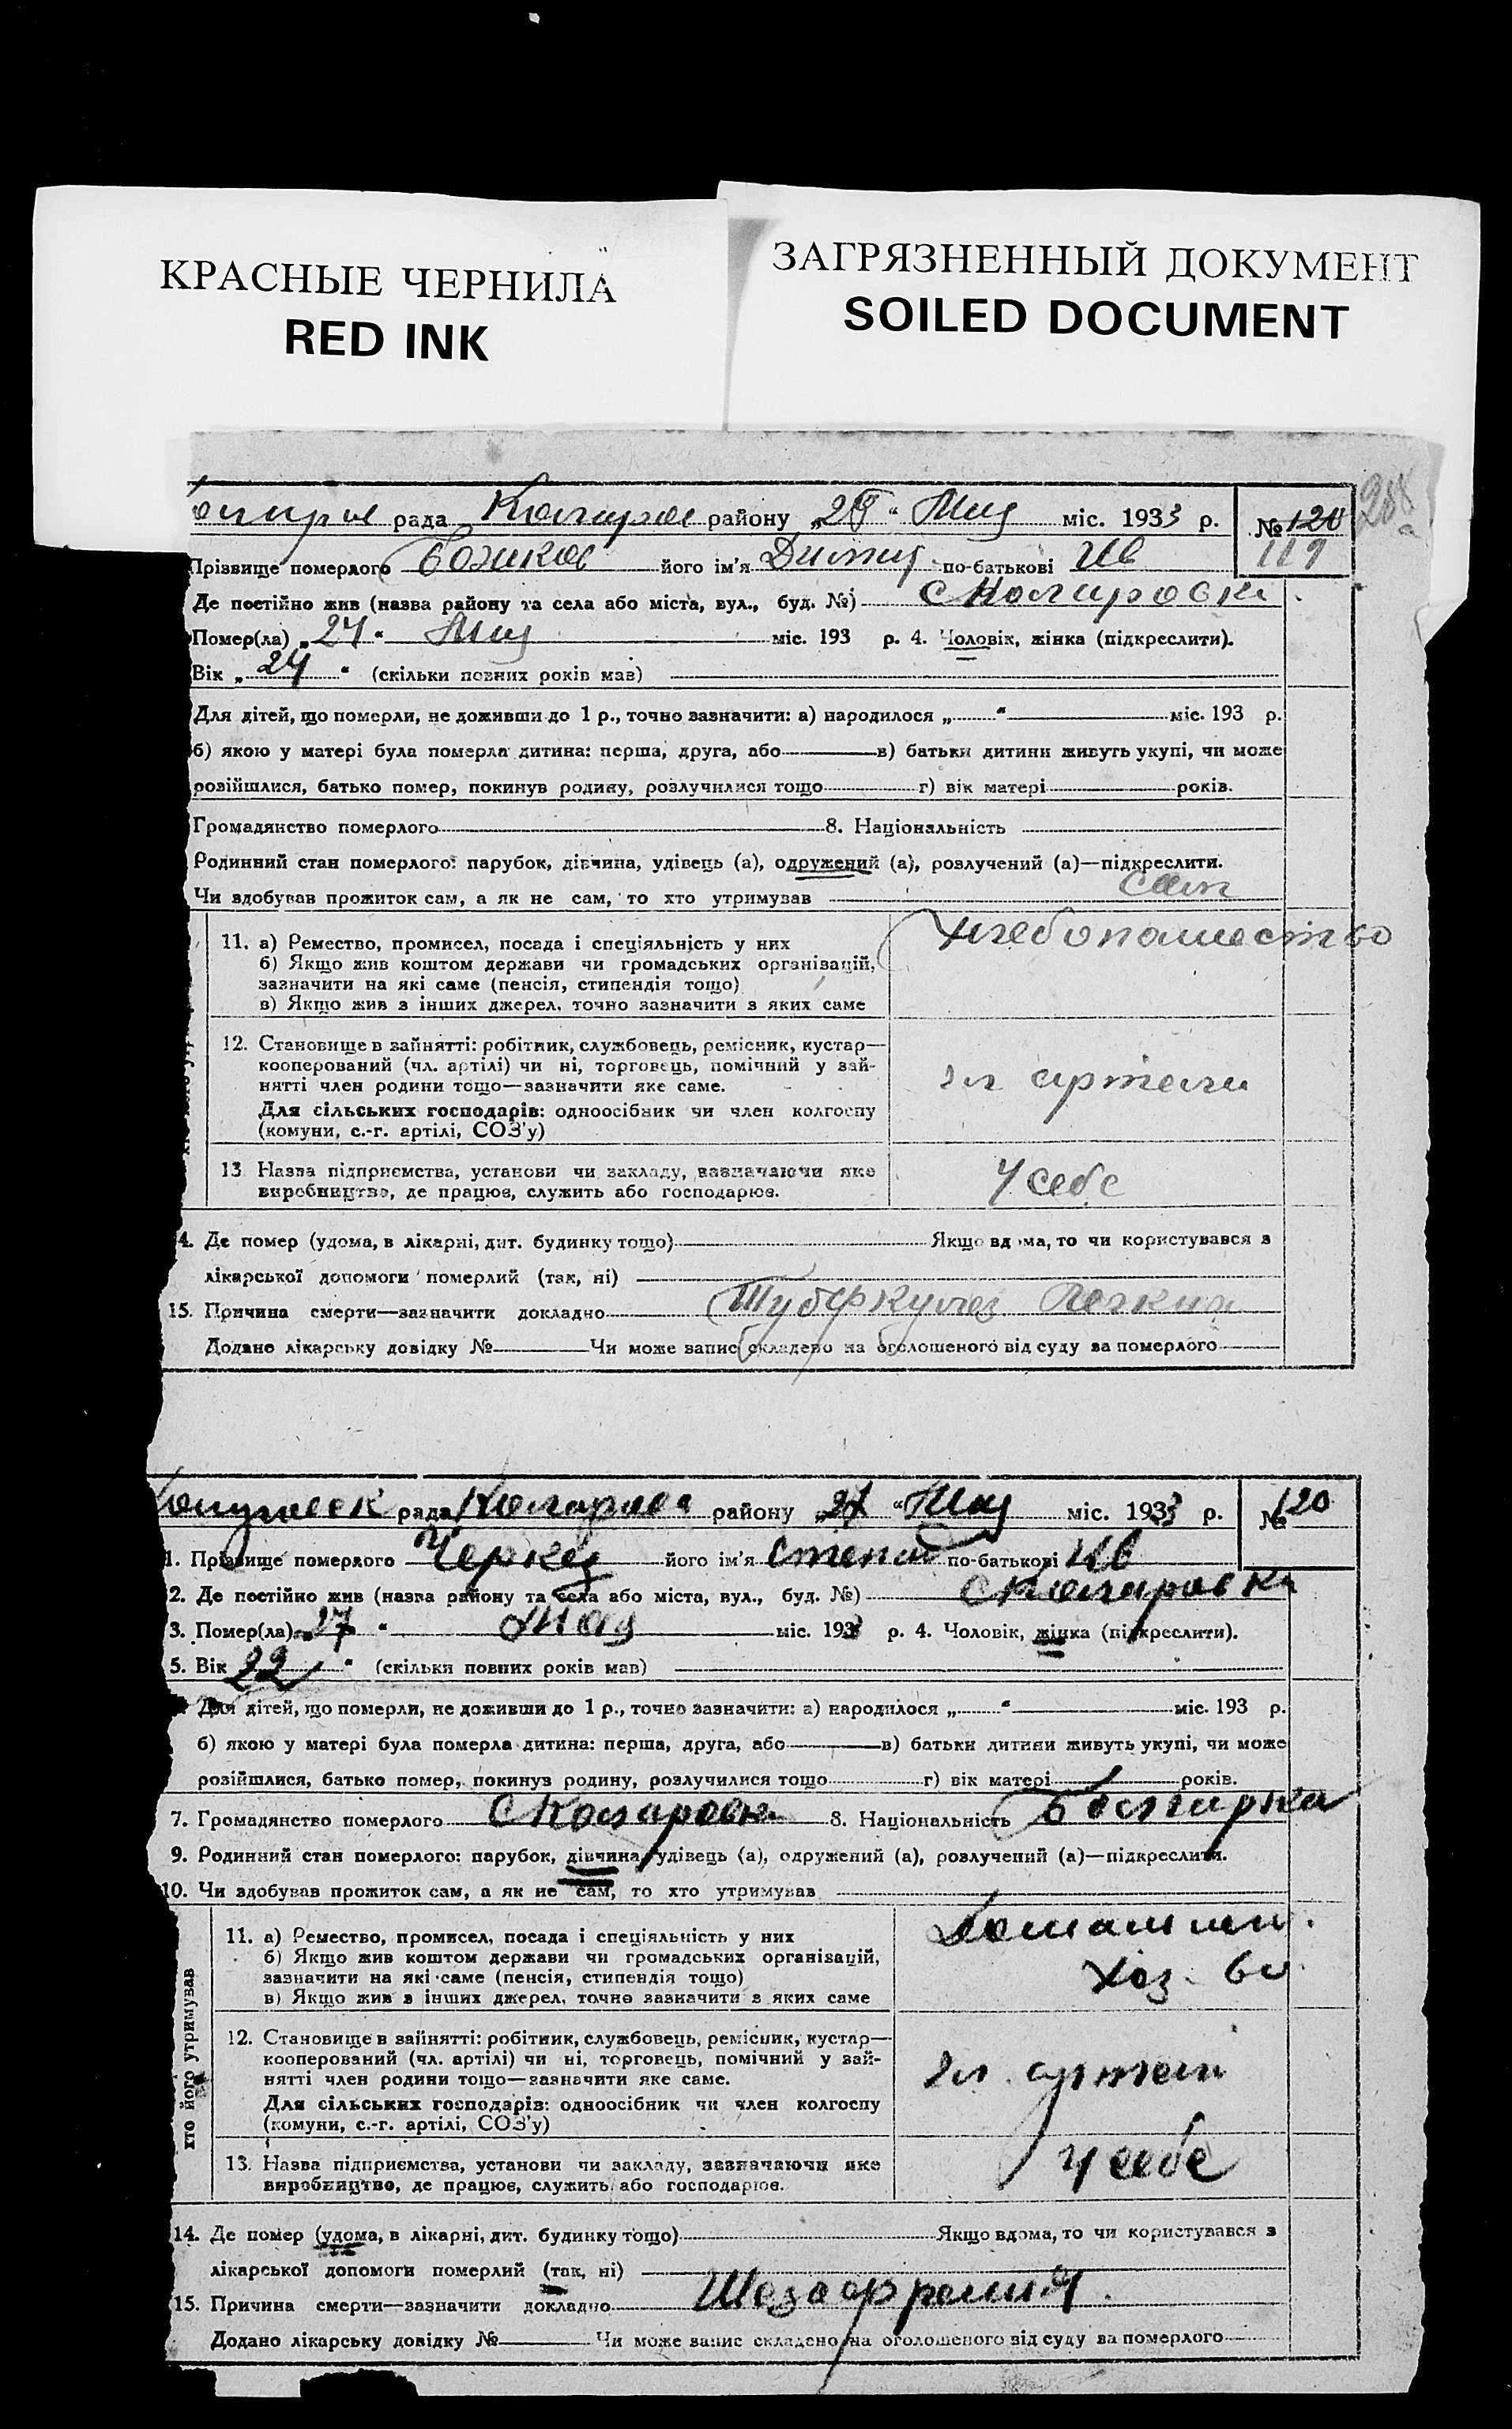 КРАСНЫЕ ЧЕРНИЛА
RED INK
ЗАГРЯЗНЕННЫЙ ДОКУМЕНТ
SOILED DOCUMENT
288
а
рада району „ “ Мая міс. 1933 р. № 120
119
Прізвище померлого його ім'я по-батькові Ив
Де постійно жив (назва району та села або міста, вул., буд. №) с Коларовка
Помер(ла) „ “ Мая міс. 193 р. 4. Чоловік, жінка (підкреслити).
Вік „ 24 “ (скільки повних років мав)
Для дітей, що померли, не доживши до 1 р., точно зазначити: а) народилося „ “ міс. 193 р.
б) якою у матері була померла дитина: перша, друга, або в) батьки дитини живуть укупі, чи може
розійшлися, батько помер, покинув родину, розлучилися тощо г) вік матері років.
Громадянство померлого 8. Національність
Родинний стан померлого: парубок, дівчина, удівець (а), одружений (а), розлучений (а)—підкреслити.
Чи здобував прожиток сам, а як не сам, то хто утримував Сам
11. а) Ремество, промисел, посада і спеціяльність у них Хлебопашество
б) Якщо жив коштом держави чи громадських організацій,
зазначити на які саме (пенсія, стипендія тощо)
в) Якщо жив з інших джерел, точно зазначити з яких саме
12. Становище в зайнятті: робітник, службовець, ремісник, кустар—
кооперований (чл. артілі) чи ні, торговець, помічний у зай-
нятті член родини тощо—зазначити яке саме. чл артели
Для сільських господарів: одноосібник чи член колгоспу
(комуни, с.-г. артілі, СОЗ'у)
13 Назва підприємства, установи чи закладу, зазначаючи яке У себе
виробництво, де працює, служить або господарює.
4. Де помер (удома, в лікарні, дит. будинку тощо) Якщо вдома, то чи користувався з
лікарської допомоги померлий (так, ні)
15. Причина смерти—зазначити докладно Туберкулез
Додано лікарську довідку № Чи може запис складено на оголошеного від суду за померлого
рада району „27 “ Мая міс. 1933 р. № 120
1. Прізвище померлого Черкез його ім'я по-батькові Ив
2. Де постійно жив (назва району та села або міста, вул., буд. №) с Коларовка
3. Помер(ла) „27 “ Мая міс. 1933 р. 4. Чоловік, жінка (підкреслити).
5. Вік 22 “ (скільки повних років мав)
Для дітей, що померли, не доживши до 1 р., точно зазначити: а) народилося „ “ міс. 193 р.
б) якою у матері була померла дитина: перша, друга, або в) батьки дитини живуть укупі, чи може
розійшлися, батько помер, покинув родину, розлучилися тощо г) вік матері років.
7. Громадянство померлого с Коларовка 8. Національність Болгарка
9. Родинний стан померлого: парубок, дівчина, удівець (а), одружений (а), розлучений (а)—підкреслити.
10. Чи здобував прожиток сам, а як не сам, то хто утримував
хто його утримував
11. а) Ремество, промисел, посада і спеціяльність у них Домашн.
б) Якщо жив коштом держави чи громадських організацій,
зазначити на які саме (пенсія, стипендія тощо) Хоз-во
в) Якщо жив з інших джерел, точно зазначити з яких саме
12. Становище в зайнятті: робітник, службовець, ремісник, кустар—
кооперований (чл. артілі) чи ні, торговець, помічний у зай-
нятті член родини тощо—зазначити яке саме. чл артели
Для сільських господарів: одноосібник чи член колгоспу
(комуни, с.-г. артілі, СОЗ'у)
13. Назва підприємства, установи чи закладу, зазначаючи яке У себе
виробництво, де працює, служить або господарює.
14. Де помер (удома, в лікарні, дит. будинку тощо) Якщо вдома, то чи користувався з
лікарської допомоги померлий (так, ні)
15. Причина смерти—зазначити докладно
Додано лікарську довідку № Чи може запис складено на оголошеного від суду за померлого